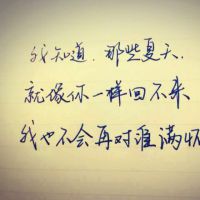 我知道，那些夏天，
就像你一样回不来
我也不会再对谁满怀